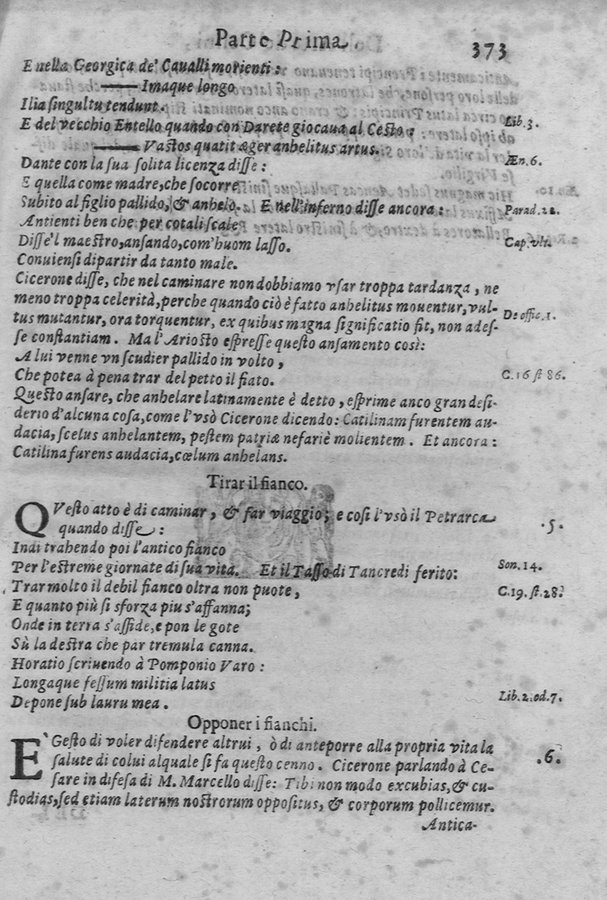 Parte Prima. 373
E nella Georgica de' Caualli morienti:
Imaque longo
Ilia singultu tendunt. Lib. 3.
E del vecchio Entello quando con Darete giocaua al Cesto:
Vastos quatit æger anhelitus artus. Æn. 6.
Dante con la sua solita licenza disse:
E quella come madre, che socorre
Subito al figlio pallido, & anhelo. E nell'inferno disse ancora: Parad. 22.
Antienti ben che per cotali scale
Disse'l maestro, ansando, com'huom lasso. Cap. vlt.
Conuiensi dipartir da tanto male.
Cicerone disse, che nel caminare non dobbiamo vsar troppa tardanza, ne
meno troppa celerità, perche quando ciò è fatto anhelitus mouentur, vul-
tus mutantur, ora torquentur, ex quibus magna significatio fit, non ades- De offic. 1.
se constantiam. Ma l'Ariosto espresse questo ansamento così:
A lui venne vn scudier pallido in volto,
Che potea à pena trar del petto il fiato. C. 16 st 86.
Questo ansare, che anhelare latinamente è detto, esprime anco gran desi-
derio d'alcuna cosa, come l'vsò Cicerone dicendo: Catilinam furentem au-
dacia, scelus anhelantem, pestem patriæ nefariè molientem. Et ancora:
Catilina furens audacia, cœlum anhelans.
Tirar il fianco.
QVesto atto è di caminar, & far viaggio; e così l'vsò il Petrarca
quando disse: .5.
Indi trahendo poi l'antico fianco
Per l'estreme giornate di sua vita. Et il Tasso di Tancredi ferito: Son. 14.
Trar molto il debil fianco oltra non puote, C. 19. st. 28.
E quanto più si sforza piu s'affanna;
Onde in terra s'asside, e pon le gote
Sù la destra che par tremula canna.
Horatio scriuendo à Pomponio Varo:
Longaque fessum militia latus
Depone sub lauru mea. Lib. 2. od. 7.
Opponer i fianchi.
È Gesto di voler difendere altrui, ò di anteporre alla propria vita la
salute di colui alquale si fa questo cenno. Cicerone parlando à Ce- .6.
sare in difesa di M. Marcello disse: Tibi non modo excubias, & cu-
stodias, sed etiam laterum nostrorum oppositus, & corporum pollicemur.
Antica-